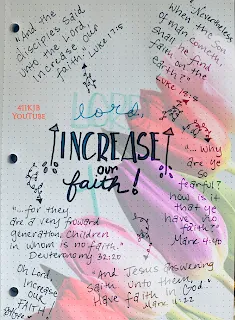 "And the
disciples said
unto the Lord
increase our
faith" Luke 17:5
"Nevertheless
When the Son
of man cometh,
shall he find
faith on the
earth?"
Luke 18:8
YOUTUBE
lord,
INCREASE
our
faith!
"... why
are ye
so
fearful?
how is it
that ye
have no
faith?
Mark 4:40
"...for they
are a very froward
generation, children
in whom is no faith."
Deuteronomy 32:20
Oh Lord,
increase
OUR
FAITH!
"And Jesus answering
saith unto them,
Have faith in God."
Mark 11:22